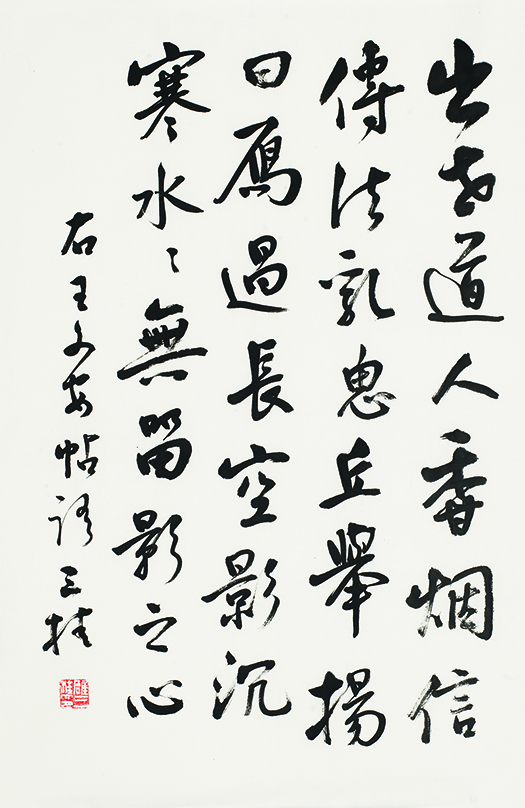 出世道人香烟信
傳法乳丘舉揚
曰雁過長空影沉
寒水〻無留影之心
右王文安帖語三桂